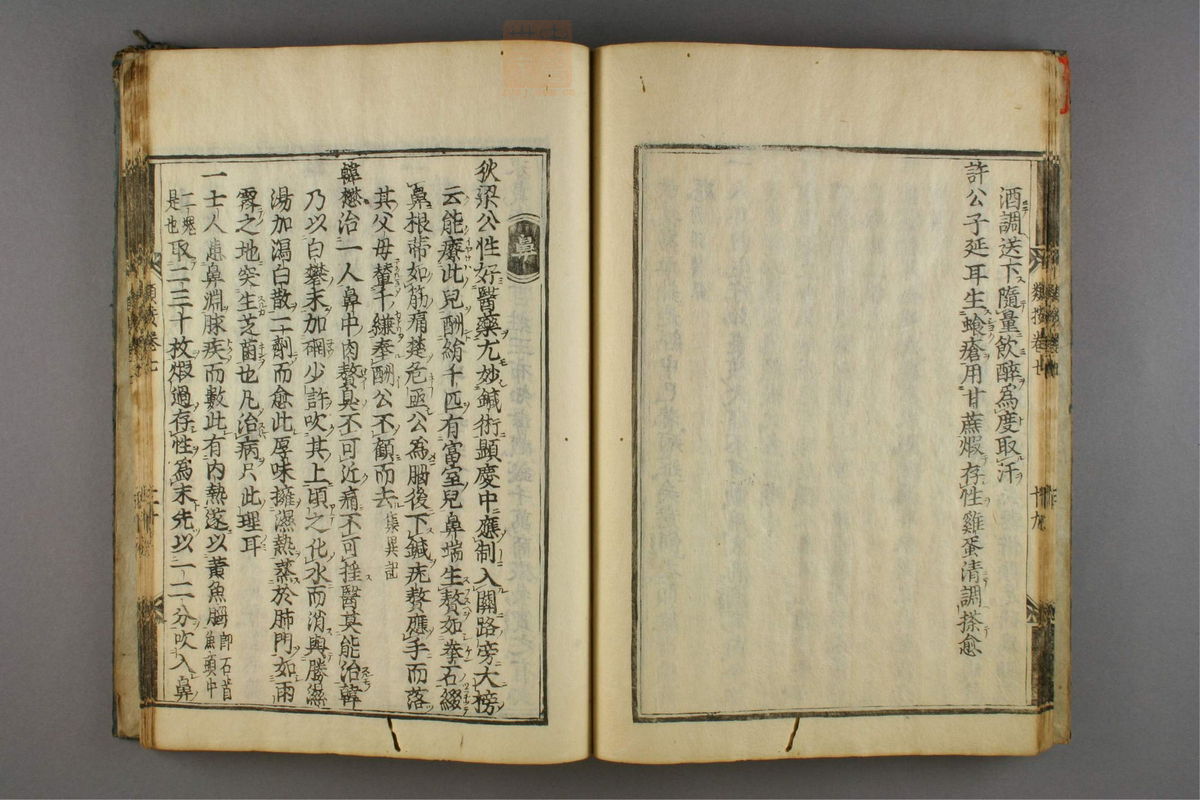 酒調送下隨量飲醉為度取汗
許公子延耳生蝕瘡用甘蔗煆存性雞蛋清調搽愈
鼻
狄梁公性好醫藥尤妙鍼術顯慶中應制入關路旁大榜
云能療此兒酬絹千匹有富室兒鼻端生贅如拳石綴
鼻根蒂如筋痛楚危亟公為腦後下鍼疣贅應手而落
其父母輦千縑奉酬公不顧而去集異記
韓懋治一人鼻中肉贅臭不可近痛不可搖醫莫能治韓
乃以白礬末加硇少許吹其上頃之化水而消與勝濕
湯加瀉白散二劑而愈此厚味擁濕熱蒸於肺門如雨
霽之地突生芝菌也凡治病只此理耳
一士人患鼻淵腺疾而數此有內熱遂以黃魚腦即石首魚頭中
二塊是也取二三十枚煆過存性為末先以一二分吹入鼻